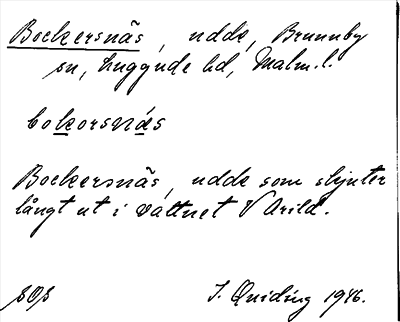 Bockersnäs, udde, Brunnby
sn, Luggude hd, Malm. l.
bokorsnás
Bockersnäs, udde som skjuter
långt ut i vattnet V Arild.
SOS
J. Qviding 1946.